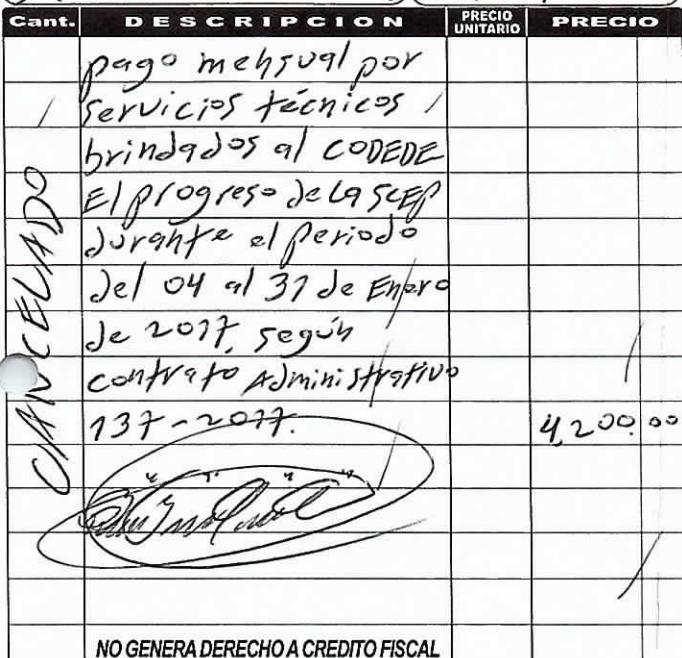 Cant. DESCRIPCION PRECIO UNITARIO PRECIO
pago mehsual por
servicios técnicos
brindados al CODEDE
El progreso de la SCEP
durante el periodo
del 04 al 31 de Enero
de 2017, según
contrato Administrativo
137-2017. 4,200.00
CANCELADO
NO GENERA DERECHO A CREDITO FISCAL